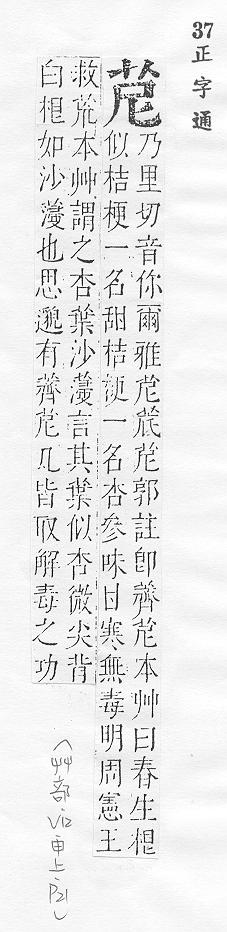 37正字通
苨
乃里切音你爾雅苨菧苨郭註卽薺苨本艸曰春生根
似桔梗一名甜桔梗一名杏參味甘寒無毒明周憲王
救荒本艸謂之杏葉沙薓言其葉似杏微尖背
白根如沙薓也思邈有薺苨皆取解毒之功
(艸部·V12申上·P21)